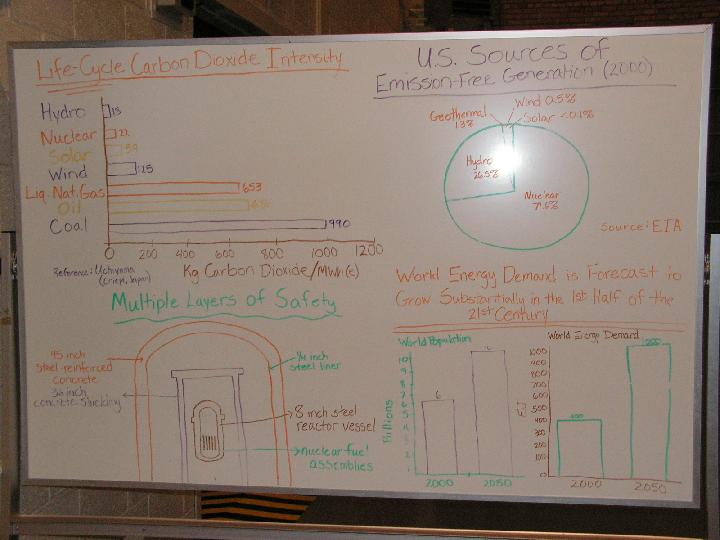 Life-Cycle Carbon Dioxide Intensity
Hydro 15
Nuclear 22
Solar 59
Wind 125
Liq. Nat. Gas 653
Oil
Coal 990
0 200 400 600 800 1000 1200
Kg Carbon Dioxide/MWh(e)
Reference: Uchiyama
(Criepi, Japan)
U.S. Sources of
Emission-Free Generation (2000)
Wind 0.5%
Geothermal
Solar <0.1%
Hydro
26.5%
Nuclear
Source: EIA
Multiple Layers of Safety
45 inch
steel-reinforced
concrete
36 inch
concrete shielding
1/4 inch
steel liner
8 inch steel
reactor vessel
nuclear fuel
assemblies
World Energy Demand is Forecast to
Grow Substantially in the 1st Half of the
21st Century
World Population
Billions
6
2000 2050
World Energy Demand
EJ
1000
900
800
700
600
500
400
300
200
100
0
400
2000 2050